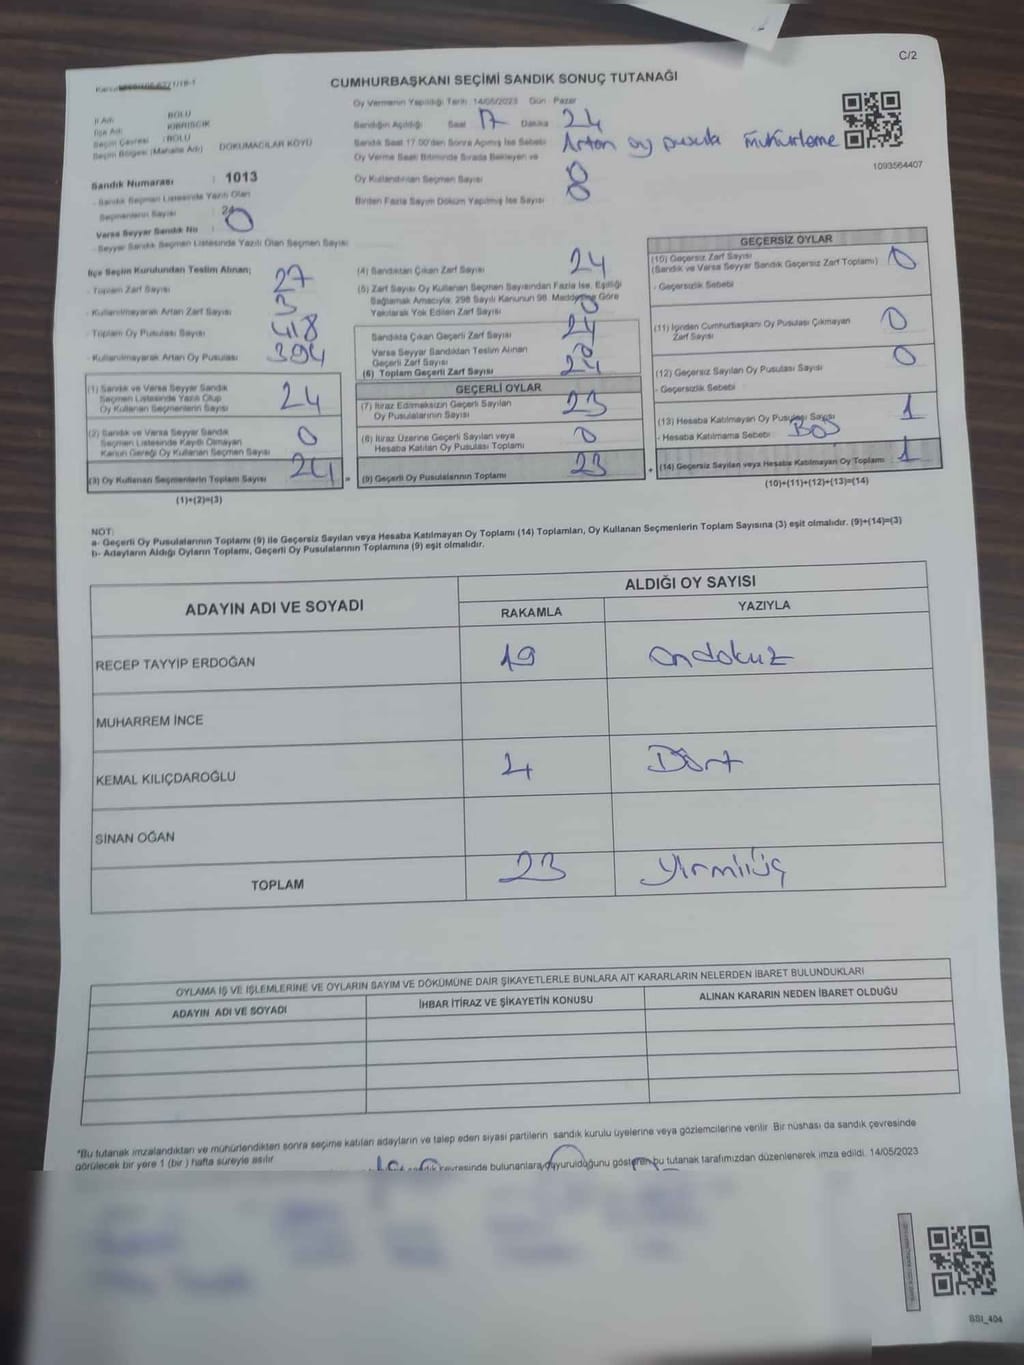 C/2
CUMHURBAŞKANI SEÇİMİ SANDIK SONUÇ TUTANAĞI
Oy Vermenin Yapıldığı Tarih : 14/05/2023 Gün : Pazar
İl Adı : BOLU
İlçe Adı : KIBRISCIK
Seçim Çevresi : BOLU
Seçim Bölgesi (Mahalle Adı) DOKUMACILAR KÖYÜ
Sandığın Açıldığı Saat 17 Dakika 24
Sandık Saat 17.00'den Sonra Açılmış İse Sebebi Artan oy pusula mühürleme
Oy Verme Saati Bitiminde Sırada Bekleyen ve
Oy Kullandırılan Seçmen Sayısı 0
Birden Fazla Sayım Döküm Yapılmış İse Sayısı 0
1093564407
Sandık Numarası : 1013
- Sandık Seçmen Listesinde Yazılı Olan
Seçmenlerin Sayısı : 24
Varsa Seyyar Sandık No : 0
- Seyyar Sandık Seçmen Listesinde Yazılı Olan Seçmen Sayısı
İlçe Seçim Kurulundan Teslim Alınan;
- Toplam Zarf Sayısı 27
- Kullanılmayarak Artan Zarf Sayısı 3
- Toplam Oy Pusulası Sayısı 418
- Kullanılmayarak Artan Oy Pusulası 394
(1) Sandık ve Varsa Seyyar Sandık
Seçmen Listesinde Yazılı Olup
Oy Kullanan Seçmenlerin Sayısı 24
(2) Sandık ve Varsa Seyyar Sandık
Seçmen Listesinde Kayıtlı Olmayan
Kanun Gereği Oy Kullanan Seçmen Sayısı 0
(3) Oy Kullanan Seçmenlerin Toplam Sayısı 24
(1)+(2)=(3)
(4) Sandıktan Çıkan Zarf Sayısı 24
(5) Zarf Sayısı Oy Kullanan Seçmen Sayısından Fazla İse, Eşitliği
Sağlamak Amacıyla, 298 Sayılı Kanunun 98. Maddesine Göre
Yakılarak Yok Edilen Zarf Sayısı 0
Sandıkta Çıkan Geçerli Zarf Sayısı 24
Varsa Seyyar Sandıktan Teslim Alınan
Geçerli Zarf Sayısı 0
(6) Toplam Geçerli Zarf Sayısı 24
GEÇERLİ OYLAR
(7) İtiraz Edilmeksizin Geçerli Sayılan
Oy Pusulalarının Sayısı 23
(8) İtiraz Üzerine Geçerli Sayılan veya
Hesaba Katılan Oy Pusulası Toplamı 0
(9) Geçerli Oy Pusulalarının Toplamı 23
GEÇERSİZ OYLAR
(10) Geçersiz Zarf Sayısı
(Sandık ve Varsa Seyyar Sandık Geçersiz Zarf Toplamı) 0
- Geçersizlik Sebebi
(11) İçinden Cumhurbaşkanı Oy Pusulası Çıkmayan
Zarf Sayısı 0
(12) Geçersiz Sayılan Oy Pusulası Sayısı 0
- Geçersizlik Sebebi
(13) Hesaba Katılmayan Oy Pusulası Sayısı 1
- Hesaba Katılmama Sebebi BOŞ
(14) Geçersiz Sayılan veya Hesaba Katılmayan Oy Toplamı 1
(10)+(11)+(12)+(13)=(14)
NOT:
a- Geçerli Oy Pusulalarının Toplamı (9) ile Geçersiz Sayılan veya Hesaba Katılmayan Oy Toplamı (14) Toplamları, Oy Kullanan Seçmenlerin Toplam Sayısına (3) eşit olmalıdır. (9)+(14)=(3)
b- Adayların Aldığı Oyların Toplamı, Geçerli Oy Pusulalarının Toplamına (9) eşit olmalıdır.
ADAYIN ADI VE SOYADI
ALDIĞI OY SAYISI
RAKAMLA YAZIYLA
RECEP TAYYİP ERDOĞAN 19 ondokuz
MUHARREM İNCE
KEMAL KILIÇDAROĞLU 4 Dört
SİNAN OĞAN
TOPLAM 23 yirmiüç
OYLAMA İŞ VE İŞLEMLERİNE VE OYLARIN SAYIM VE DÖKÜMÜNE DAİR ŞİKAYETLERLE BUNLARA AİT KARARLARIN NELERDEN İBARET BULUNDUKLARI
ADAYIN ADI VE SOYADI İHBAR İTİRAZ VE ŞİKAYETİN KONUSU ALINAN KARARIN NEDEN İBARET OLDUĞU
*Bu tutanak imzalandıktan ve mühürlendikten sonra seçime katılan adayların ve talep eden siyasi partilerin sandık kurulu üyelerine veya gözlemcilerine verilir. Bir nüshası da sandık çevresinde
görülecek bir yere 1 (bir) hafta süreyle asılır.
çevresinde bulunanlara duyurulduğunu gösteren bu tutanak tarafımızdan düzenlenerek imza edildi. 14/05/2023
SSI_404